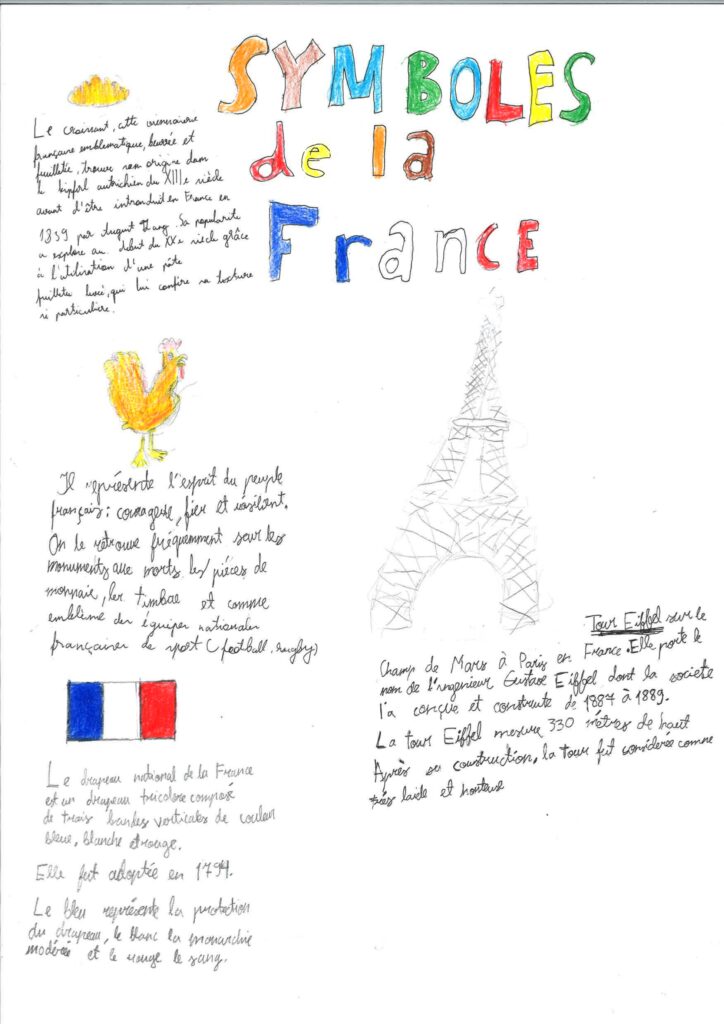 SYMBOLES
de la
France
Le croissant, cette viennoiserie
française emblématique, beurrée et
feuilletée, trouve son origine dans
le kipferl autrichien du XIIIe siècle
avant d'être introduit en France en
1839 par August Zang. Sa popularité
a explosé au début du XXe siècle grâce
à l'utilisation d'une pâte
feuilletée levée, qui lui confère sa texture
si particulière.
Il représente l'esprit du peuple
français: courageux, fier et résilient.
On le retrouve fréquemment sur les
monuments aux morts, les pièces de
monnaie, les timbre et comme
emblème des équipes nationales
françaises de sport (football, rugby)
Le drapeau national de la France
est un drapeau tricolore composé
de trois bandes verticales de couleur
bleue, blanche et rouge.
Elle fut adoptée en 1794.
Le bleu représente la protection
du drapeau, le blanc la monarchie
modérée et le rouge le sang.
Tour Eiffel sur le
Champ de Mars à Paris en France. Elle porte le
nom de l'ingenieur Gustave Eiffel dont la societé
l'a conçue et construite de 1887 à 1889.
La tour Eiffel mesure 330 mètres de haut
Après sa construction, la tour fut considérée comme
très laide et honteuse